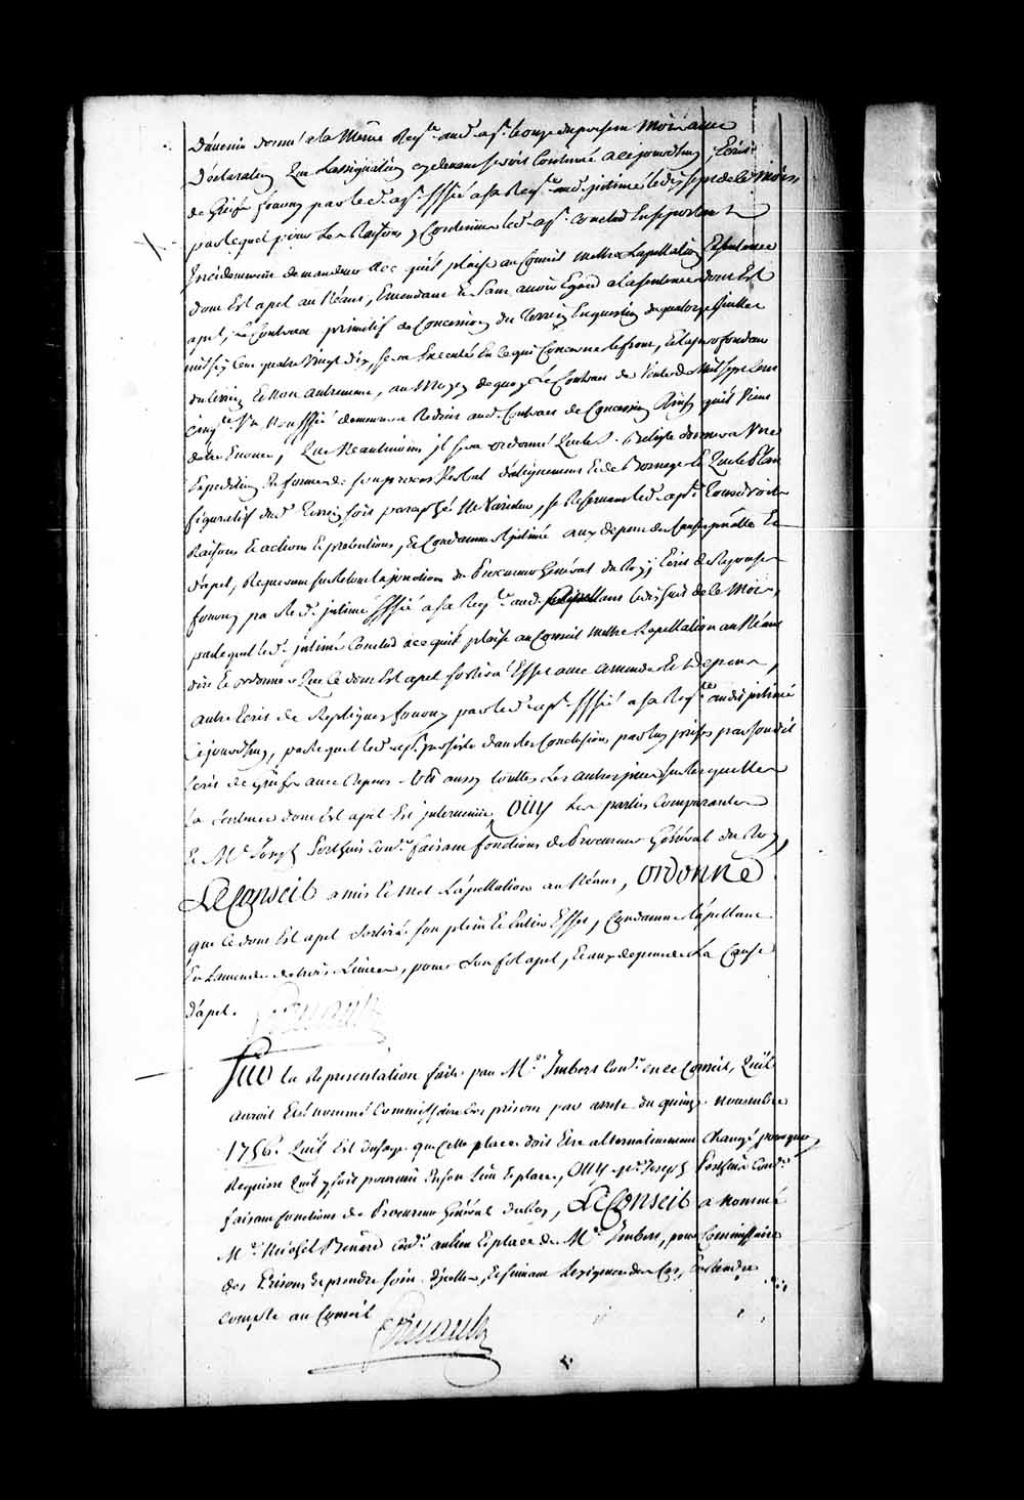 d'avenir donné a la Même Reqte audt apt le onze du present Mois avec
declaration Que Lassignation cydevant seroit Continué a cejourdhuy, Ecrit
de Griefs fourny par led. apt. signifié a sa Reqte aud. intimé le dix sept de ce Mois
par lequel pour Les Raisons y Contenües led. apt. conclud En se portant
Incidemment demandeur ace quil plaise au Conseil mettre Lapellation Et sentence
dont Est apel au Néant, Emendant et Sans avoir Egard a la sentence dont Est
apel, Le Contrat primitif de Concession du Terrein En question du quatorze Juillet
mil six Cent quatre Vingt dix, sera Executé En ce qui Concerne le front, Et la profondeur
du terrein Et non autrement, au Moyen de quoy Le Contrat de Vente de Mil sept Cent
cinqte Un signifié demeurera Reduit aud. Contrat de Concession Ainsy quil Vient
detre Enoncé, Que Neantmoins il sera ordonné Que le S. donnera Une
Expedition En forme de son procès Verbal d'alignement Et de Bornage Et Que le Plan
figuratif dud. Terrein soit paraphé Ne Varietur, se Reservant led. apt. tous droits
Raisons Et actions Et pretentions, Et Condamner Lintimé aux depens des Causes principalle Et
d'apel, Requerant sur le tout la jonction du Procureur Général du Roy; Ecrit de Reponses
fourny par led. intimé signifié a sa Reqte aud. apellant le dix huit de ce Mois,
par lequel led. intimé Conclud ace quil plaise au Conseil mettre Lapellation au Néant
dire Et ordonner Que Ce dont Est apel sortira Effet avec amende Et depens,
autre Ecrit de Repliques fourny par led. apt. signifié a sa Reqte audit intimé
Cejourdhuy, par lequel led. apt. persiste dans les Conclusions par luy prises par son dit
Ecrit de Griefs avec depens. Vû aussy touttes Les autres pieces sur lesquelles
La sentence dont Est apel Est intervenüe OUY Les parties Comparantes
Et Me Joseph Perthuis Conr. faisant fonctions de Procureur Général du Roy,
Le Conseil a mis Et met L'apellation au Néant, ordonne
que Ce dont Est apel sortira son plein Et Entier Effet, Condamne L'apellant
En Lamende de trois Livres, pour Son fol apel, Et aux depens de La Cause
d'apel.
Sur la Representation faite par Me Imbert Conr. en ce Conseil, Quil
auroit Eté nommé Commissaire des prisons par arrêt du quinze novembre
1756. Quil Est d'usage que cette place doit Etre alternativement changé pourquoy
Requiert Quil y soit pourvû En son lieu Et place, OUY Me Joseph Perthuis Conr.
faisant fonctions de Procureur Général du Roy, Le Conseil a nommé
Me Nicolas Benard Conr. au lieu Et place de Me Imbert, pour Commissaire
des Prisons Et prendre soin d'icelles, Et suivant Lexigence des Cas, En rendre
compte au Conseil